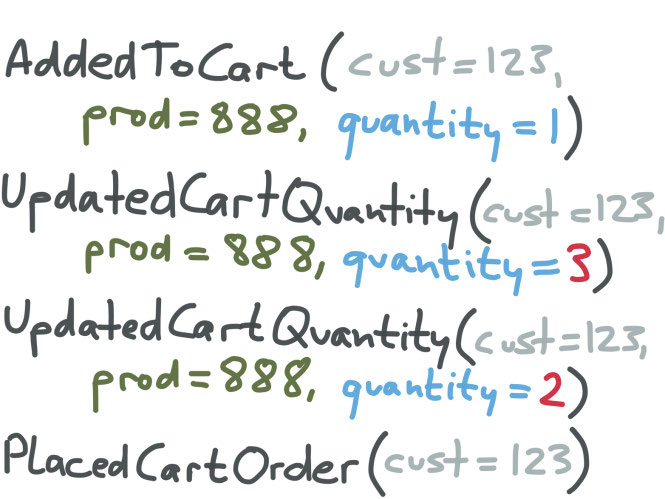 AddedToCart (cust=123,
prod=888, quantity=1)
UpdatedCartQuantity (cust=123,
prod=888, quantity=3)
UpdatedCartQuantity (cust=123,
prod=888, quantity=2)
PlacedCartOrder (cust=123)